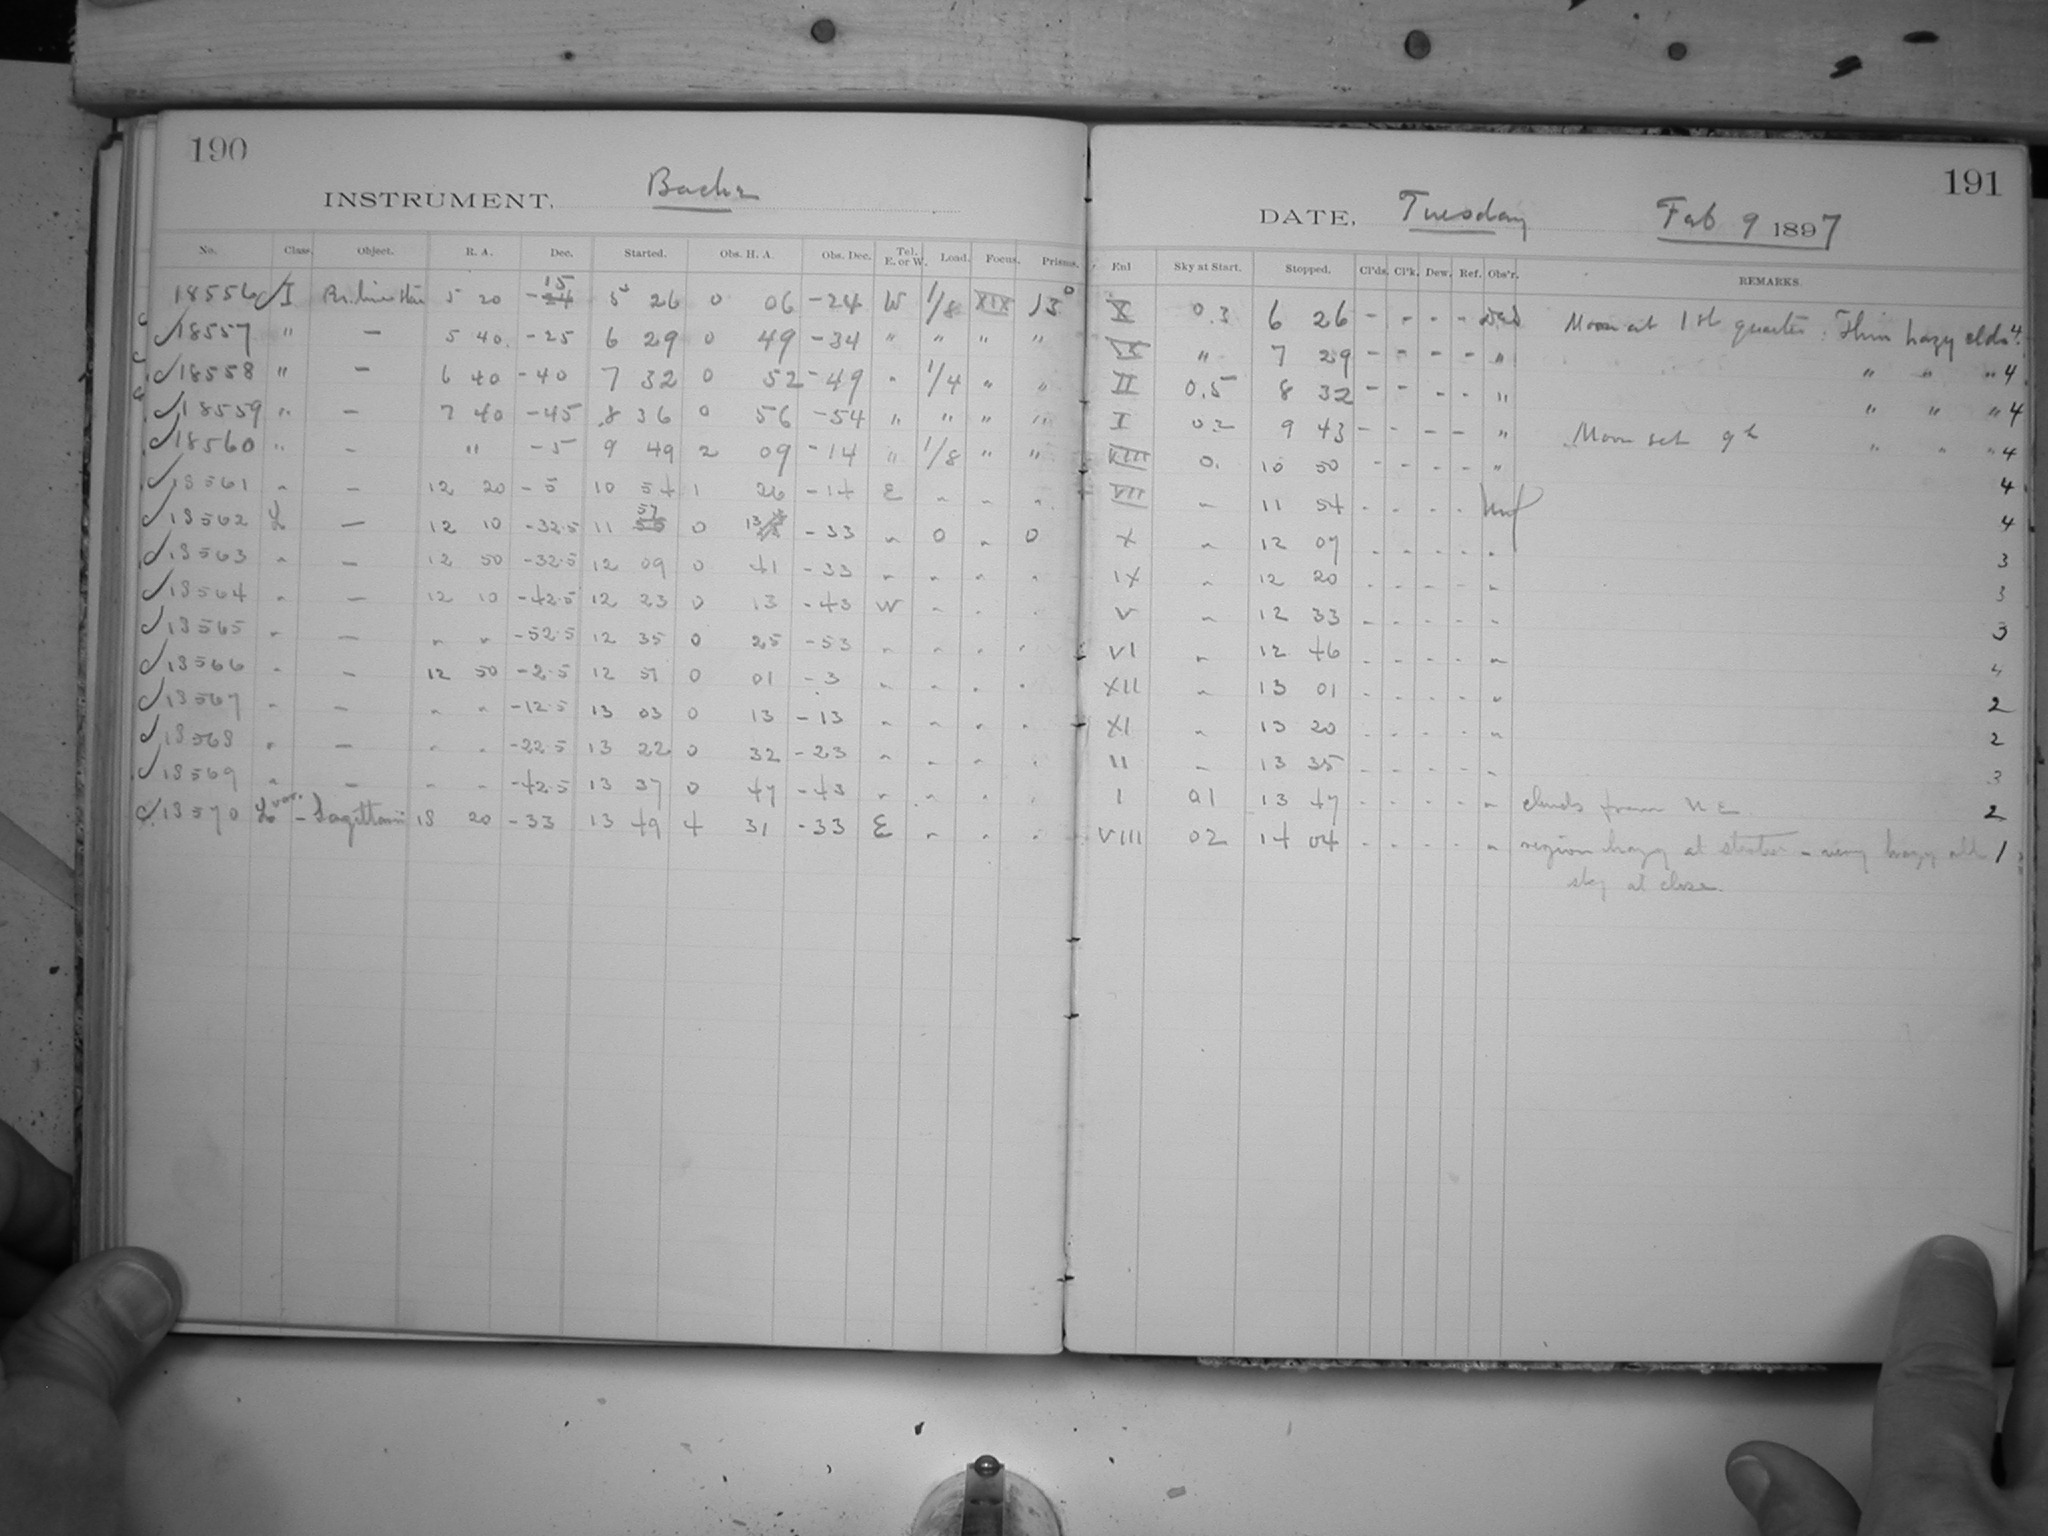 190
INSTRUMENT. Bache
No. Class. Object. R. A. Dec. Started. Obs. H. A. Obs. Dec. Tel. E. or W. Load. Focus. Prisms.
18556 I 5 20 -15 5 26 0 06 -24 W 1/8 XIX 13°
18557 " — 5 40 -25 6 29 0 49 -34 " " " "
18558 " — 6 40 -40 7 32 0 52 -49 " 1/4 " "
18559 " — 7 40 -45 8 36 0 56 -54 " " " "
18560 " — " -5 9 49 2 09 -14 " 1/8 " "
18561 " — 12 20 -5 10 54 1 26 -14 E " " "
18562 L — 12 10 -32.5 11 57 0 13 -33 " 0 " 0
18563 " — 12 50 -32.5 12 09 0 41 -33 " " " "
18564 " — 12 10 -42.5 12 23 0 13 -43 W " " "
18565 " — " " -52.5 12 35 0 25 -53 " " " "
18566 " — 12 50 -2.5 12 51 0 01 -3 " " " "
18567 " — " " -12.5 13 03 0 13 -13 " " " "
18568 " — " " -22.5 13 22 0 32 -23 " " " "
18569 " — " " -42.5 13 37 0 47 -43 " " " "
18570 L var. — Sagittarii 18 20 -33 13 49 4 31 -33 E " " "
191
DATE, Tuesday Feb 9 1897
Enl Sky at Start. Stopped. Cl'ds. Cl'k. Dew. Ref. Obs'r. REMARKS.
X 0.3 6 26 - - - - Moon at 1st quarter. Thin hazy clds. 4
IX " 7 29 - - - - " " " " 4
II 0.5 8 32 - - - - " " " " 4
I 02 9 43 - - - - " Moon set 9h " " " 4
VIII 0. 10 50 - - - - " 4
VII " 11 54 - - - - 4
X " 12 07 - - - - " 3
IX " 12 20 - - - - " 3
V " 12 33 - - - - " 3
VI " 12 46 - - - - " 4
XII " 13 01 - - - - " 2
XI " 13 20 - - - - " 2
II " 13 35 - - - - " 3
I 01 13 47 - - - - " clouds from N E 2
VIII 02 14 04 - - - - " region hazy at start — very hazy all 1
sky at close.